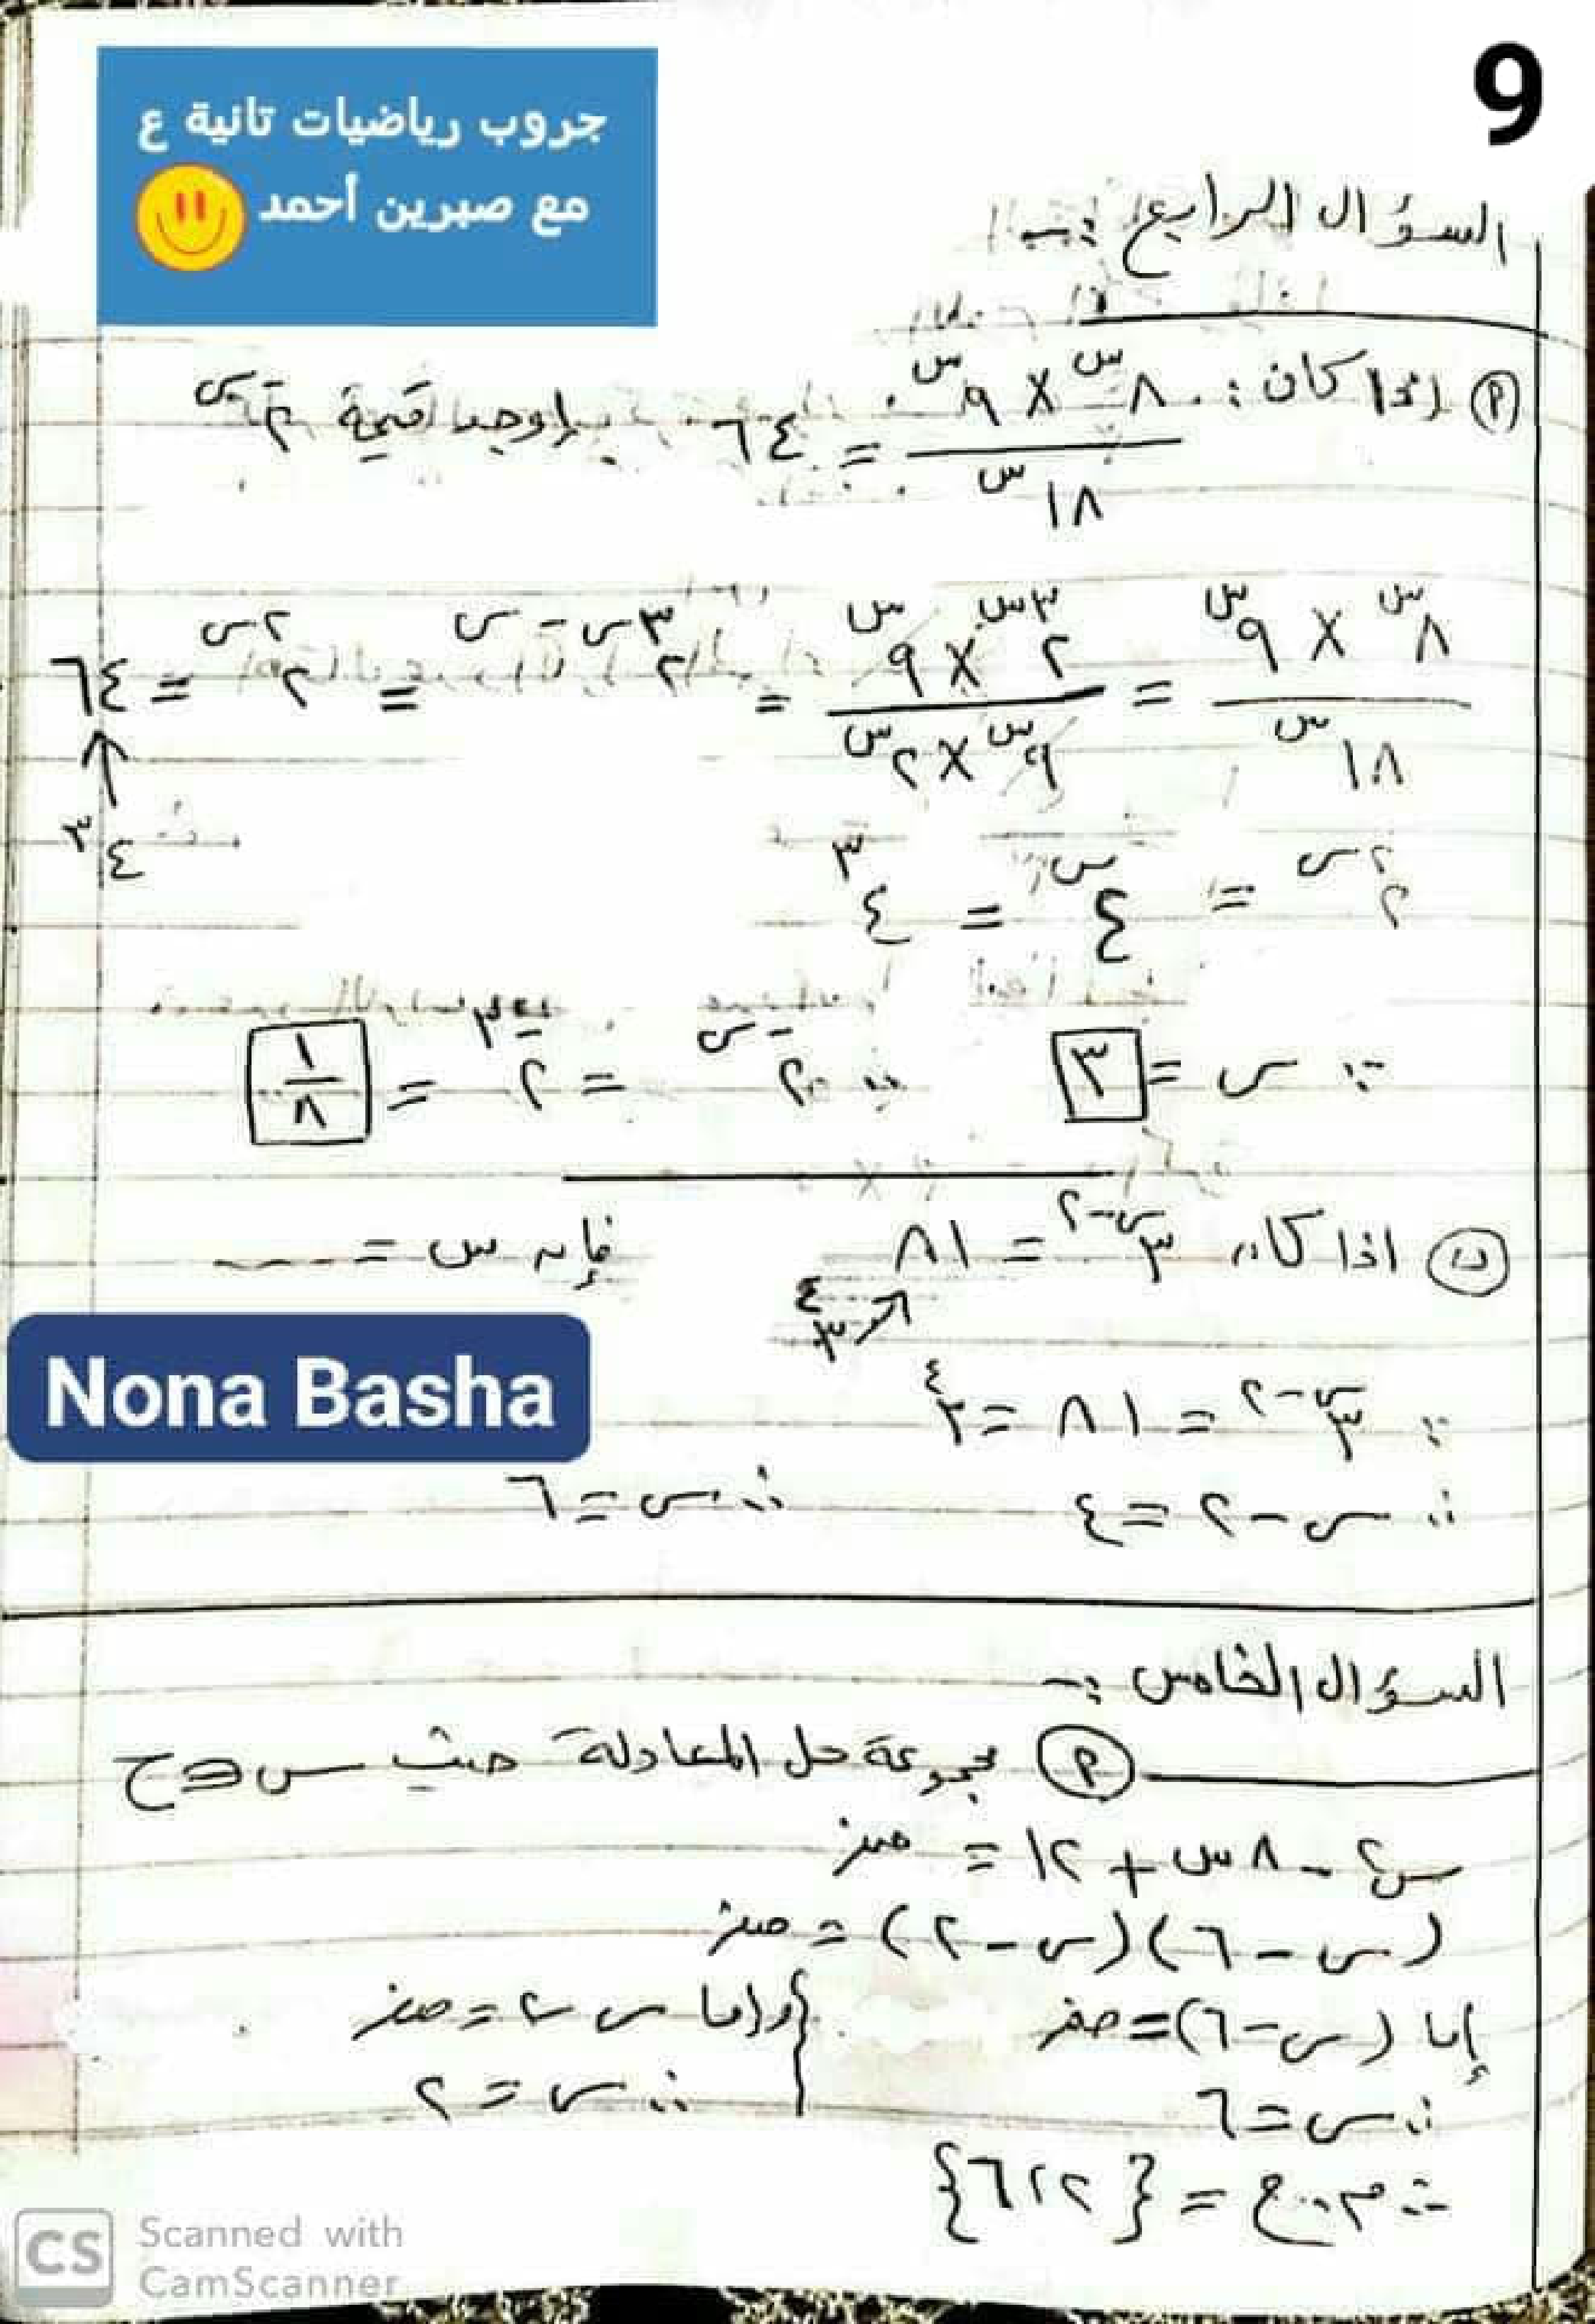 9
جروب رياضيات تانية ع
مع صبرين أحمد
السؤال الرابع :-
(أ) إذا كان : ٨^س × ٩^س / ١٨^س = ٦٤ أوجد قيمة ٢^-س
٨^س × ٩^س / ١٨^س = ٢^٣س × ٩^س / ٩^س × ٢^س = ٢^٣س - س = ٢^٢س = ٦٤
٤^٣
٢^٢س = ٤^س = ٤^٣
∴ س = ٣ ∴ ٢^-س = ٢^-٣ = ١/٨
(ب) اذا كان ٣^س-٢ = ٨١ فإن س = ----
٣^٤
∵ ٣^س-٢ = ٨١ = ٣^٤
∴ س - ٢ = ٤ ∴ س = ٦
Nona Basha
السؤال الخامس :-
(أ) مجموعة حل المعادلة حيث س ∈ ح
س٢ - ٨ س + ١٢ = صفر
(س - ٦) (س - ٢) = صفر
إما (س - ٦) = صفر وإما س - ٢ = صفر
∴ س = ٦ ∴ س = ٢
∴ م.ح = {٢ ، ٦}
CS Scanned with
CamScanner